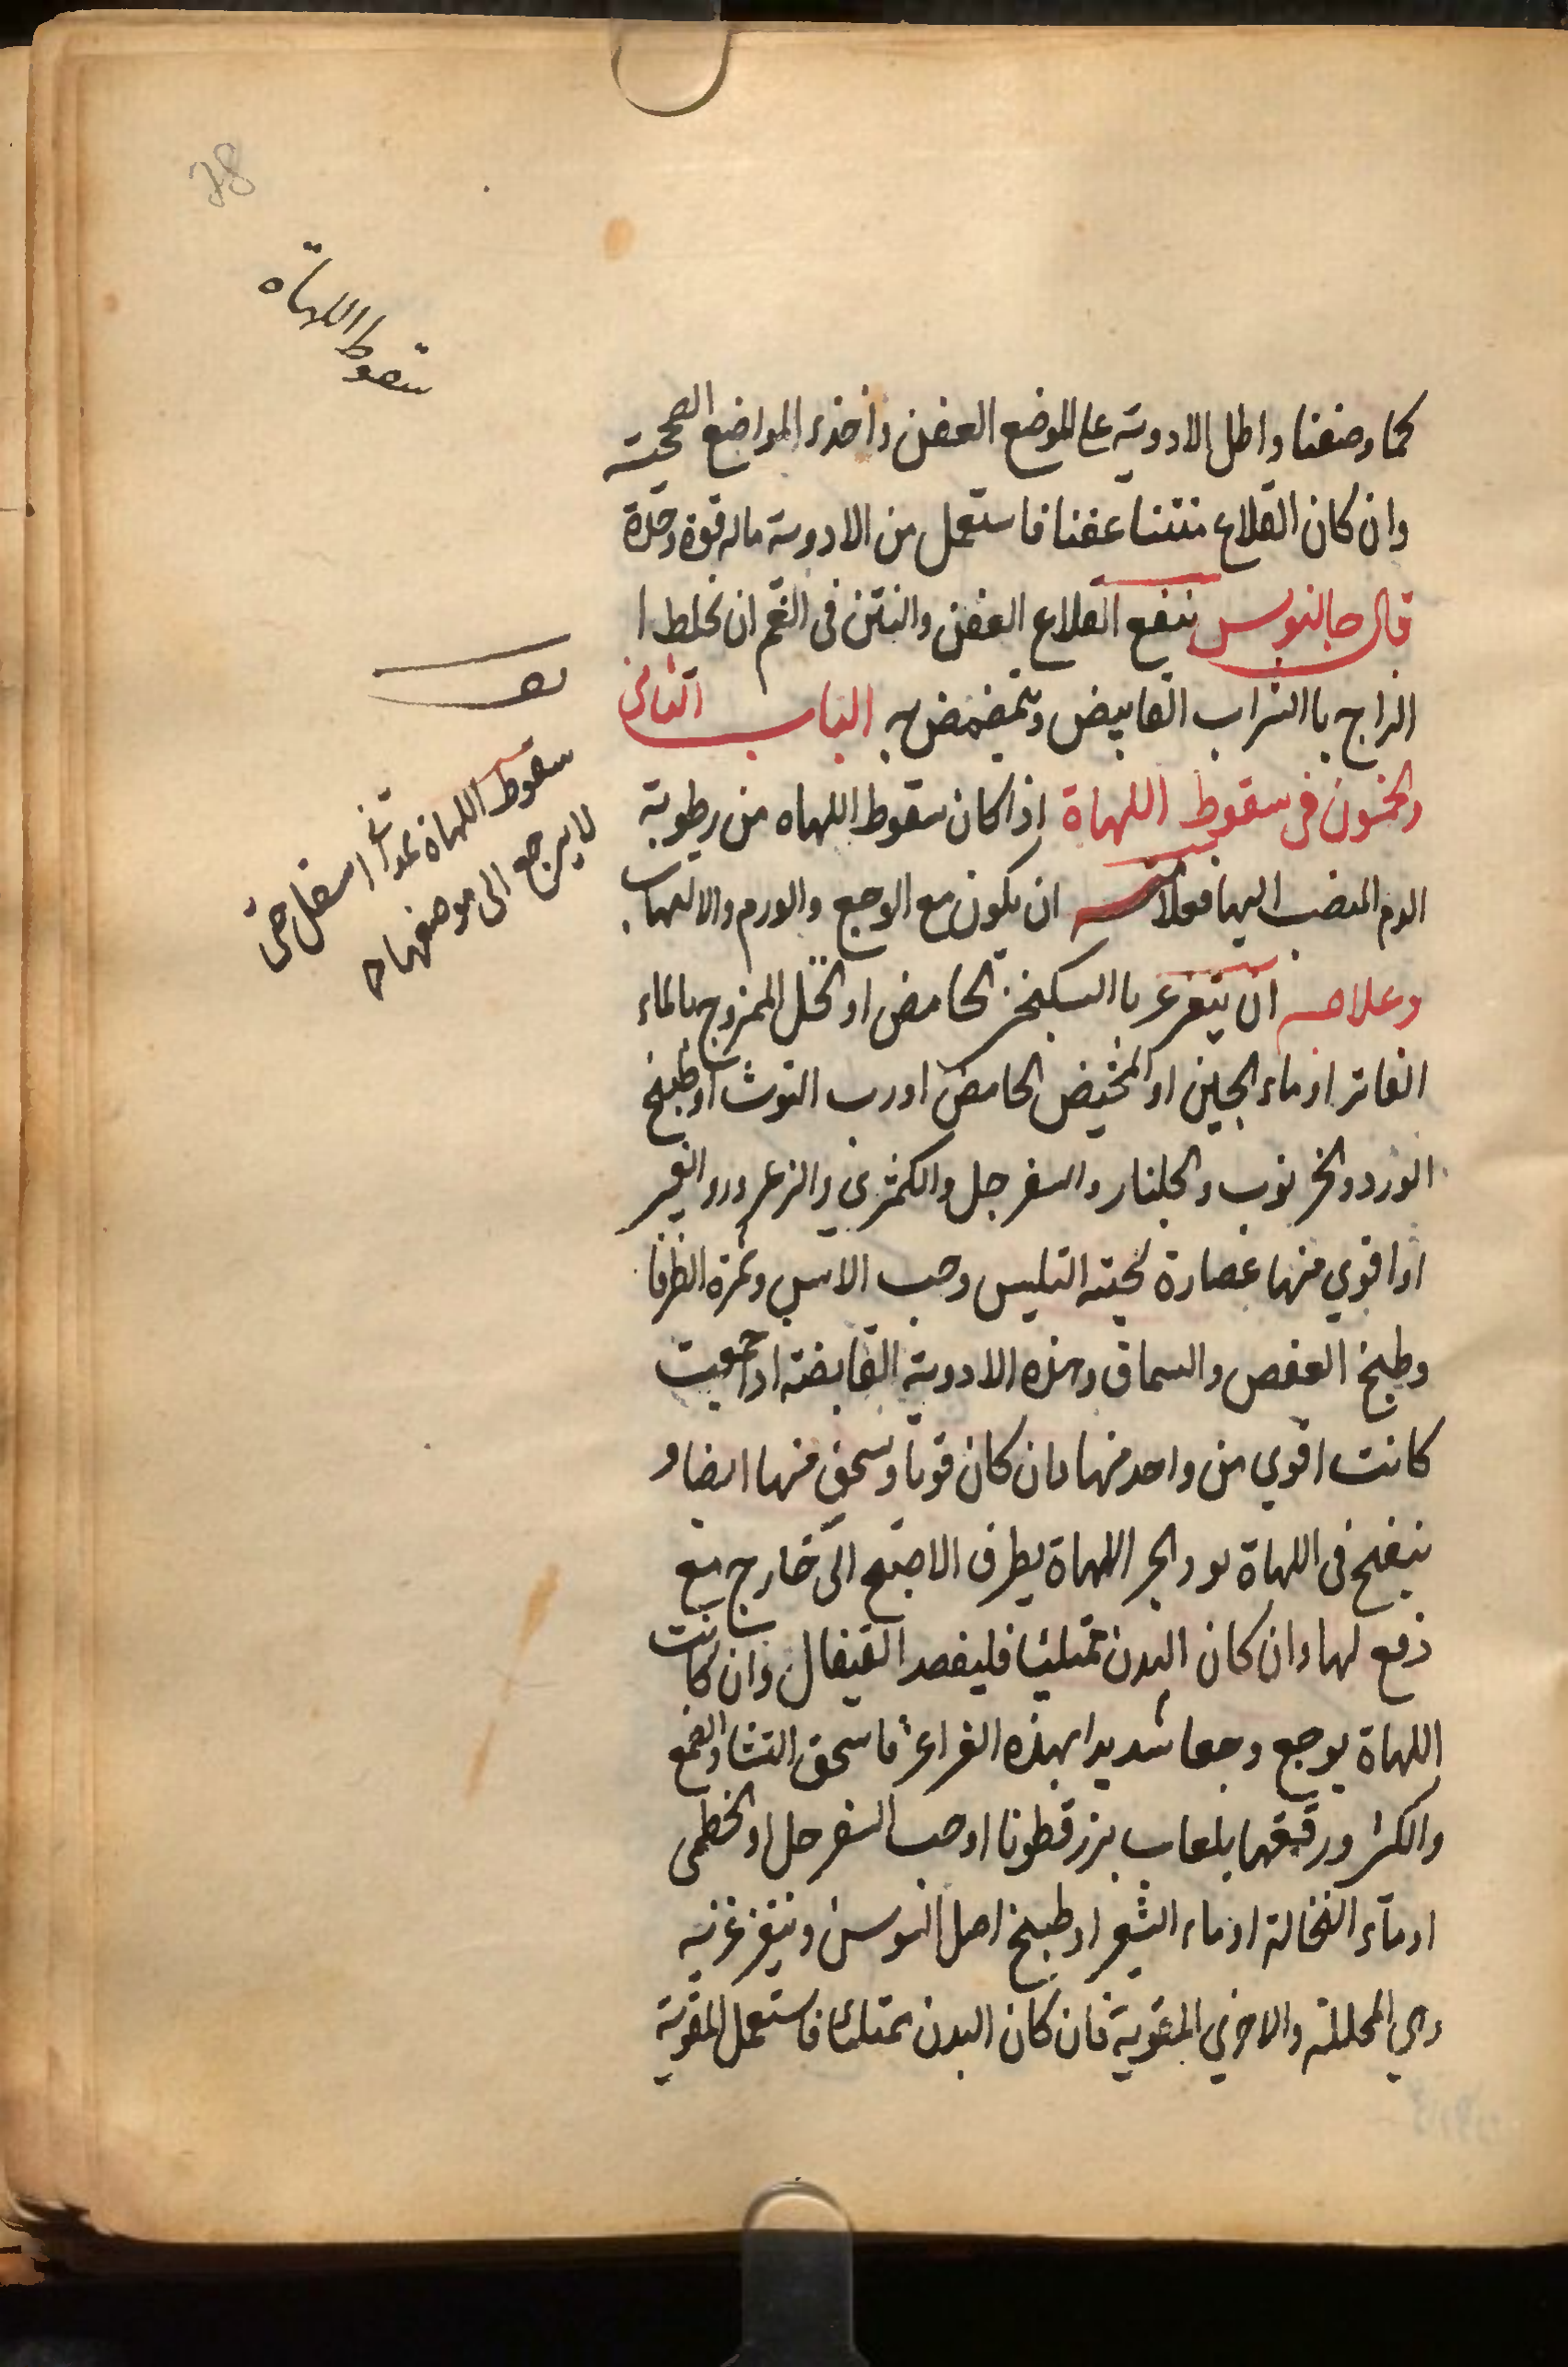 78
سقوط اللهاة
كما وصفنا واطل الادوية على الموضع العفن واخذر المواضع الصحيحته
وان كان القلاع منتنا عفنا فاستعمل من الادوية ماله قوة وحدة
قال جالينوس ينفع القلاع العفن والنتن فى الفم ان يخلط ا
الزاج باالشراب القابيض ويتمضمض به الباب الثانى
والخمسون فى سقوط اللهاة اذا كان سقوط اللهاه من رطوبة
الدم المنصب اليها فعلامته ان يكون مع الوجع والورم والالتهاب
وعلاجه ان يتغرغر باالسكنجبين الحامض او الخل الممزوج بالماء
الفاتر او ماء الجبن او المخيض الحامض اورب التوث او طبيخ
الورد والخرنوب والجلنار والسفرجل والكمثرى والزعرور والغبير
اوا قوي منها عصارة لحيته التيس وحب الاس وثمرة الطرفا
وطبيخ العفص والسماق وهذه الادوية القابضته اذا جمعيت
كانت اقوي من واحد منها وان كان قويا وتسحق منها ايضا و
ينفخ فى اللهاة الحر اللهاة بطرف الاصبع الى خارج مع
دفع لها وان كان البدن ممتلئا فليفصد القيفال وان كانت
اللهاة يوجع وجعا شديدا بهذه الغراغر فاسحق النشا والصمغ
والكثر ورقيقها بلعاب بزرقطونا اوحب السفرجل او الخطمى
اوماء النخالة اوماء الشعير اوطبيخ اصل السوسن ويتغرغر به
وهي المحللة والاخري المقوية فان كان البدن ممتلئا فاستعمل المقوية
سقوط اللهاة تمدد اسفل حتى
لا يرجع الى موضعها